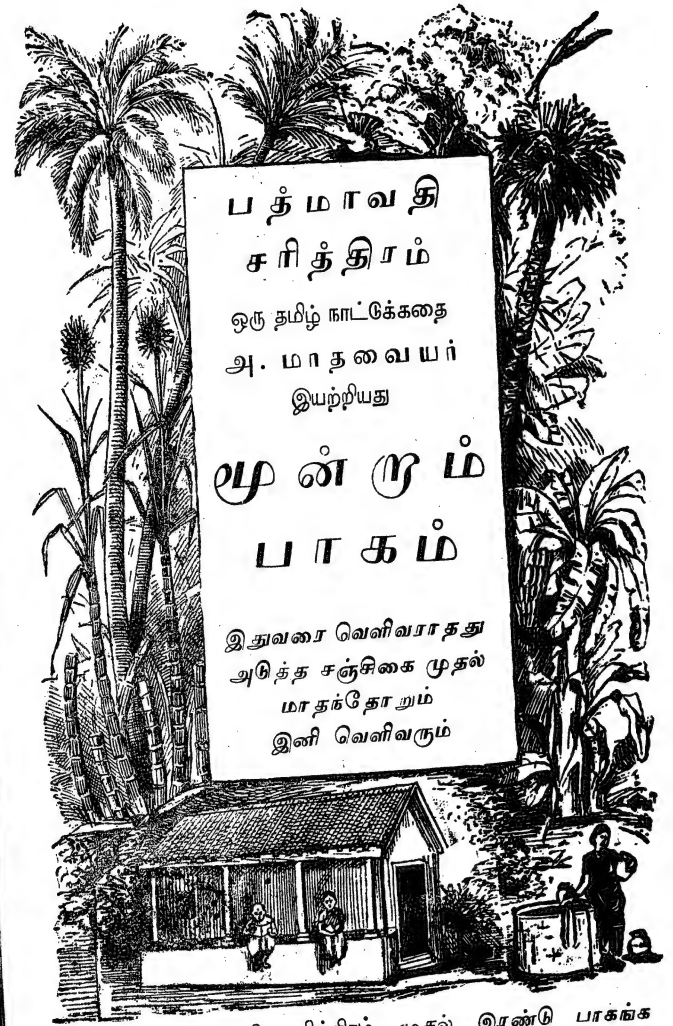 பத்மாவதி
சரித்திரம்
ஒரு தமிழ் நாட்டுக்கதை
அ. மாதவையர்
இயற்றியது
மூன்றாம்
பாகம்
இதுவரை வெளிவராதது
அடுத்த சஞ்சிகை முதல்
மாதந்தோறும்
இனி வெளிவரும்
முதல் இரண்டு பாகங்க